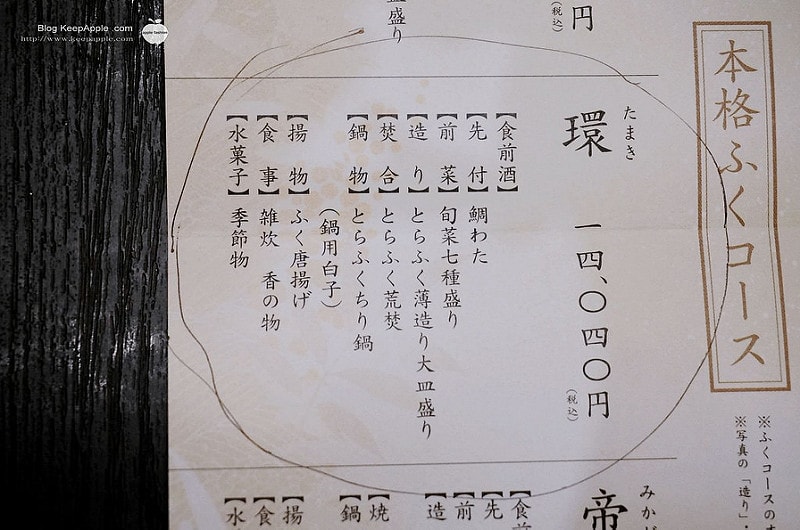 Blog KeepApple.com
http://www.keepapple.com
apple fashion
本格ふくコース
※ふくコースの
※写真の「造り」
円
(税込)
皿盛り
たまき
環 一四、〇四〇円
(税込)
【食前酒】
【先付】鯛わた
【前菜】旬菜七種盛り
【造り】とらふく薄造り大皿盛り
【焚合】とらふく荒焚
【鍋物】とらふくちり鍋
(鍋用白子)
【揚物】ふく唐揚げ
【食事】雑炊 香の物
【水菓子】季節物
みか
帝
【食前
【先
【前
【造
【焼
【鍋
【揚
【食
【水